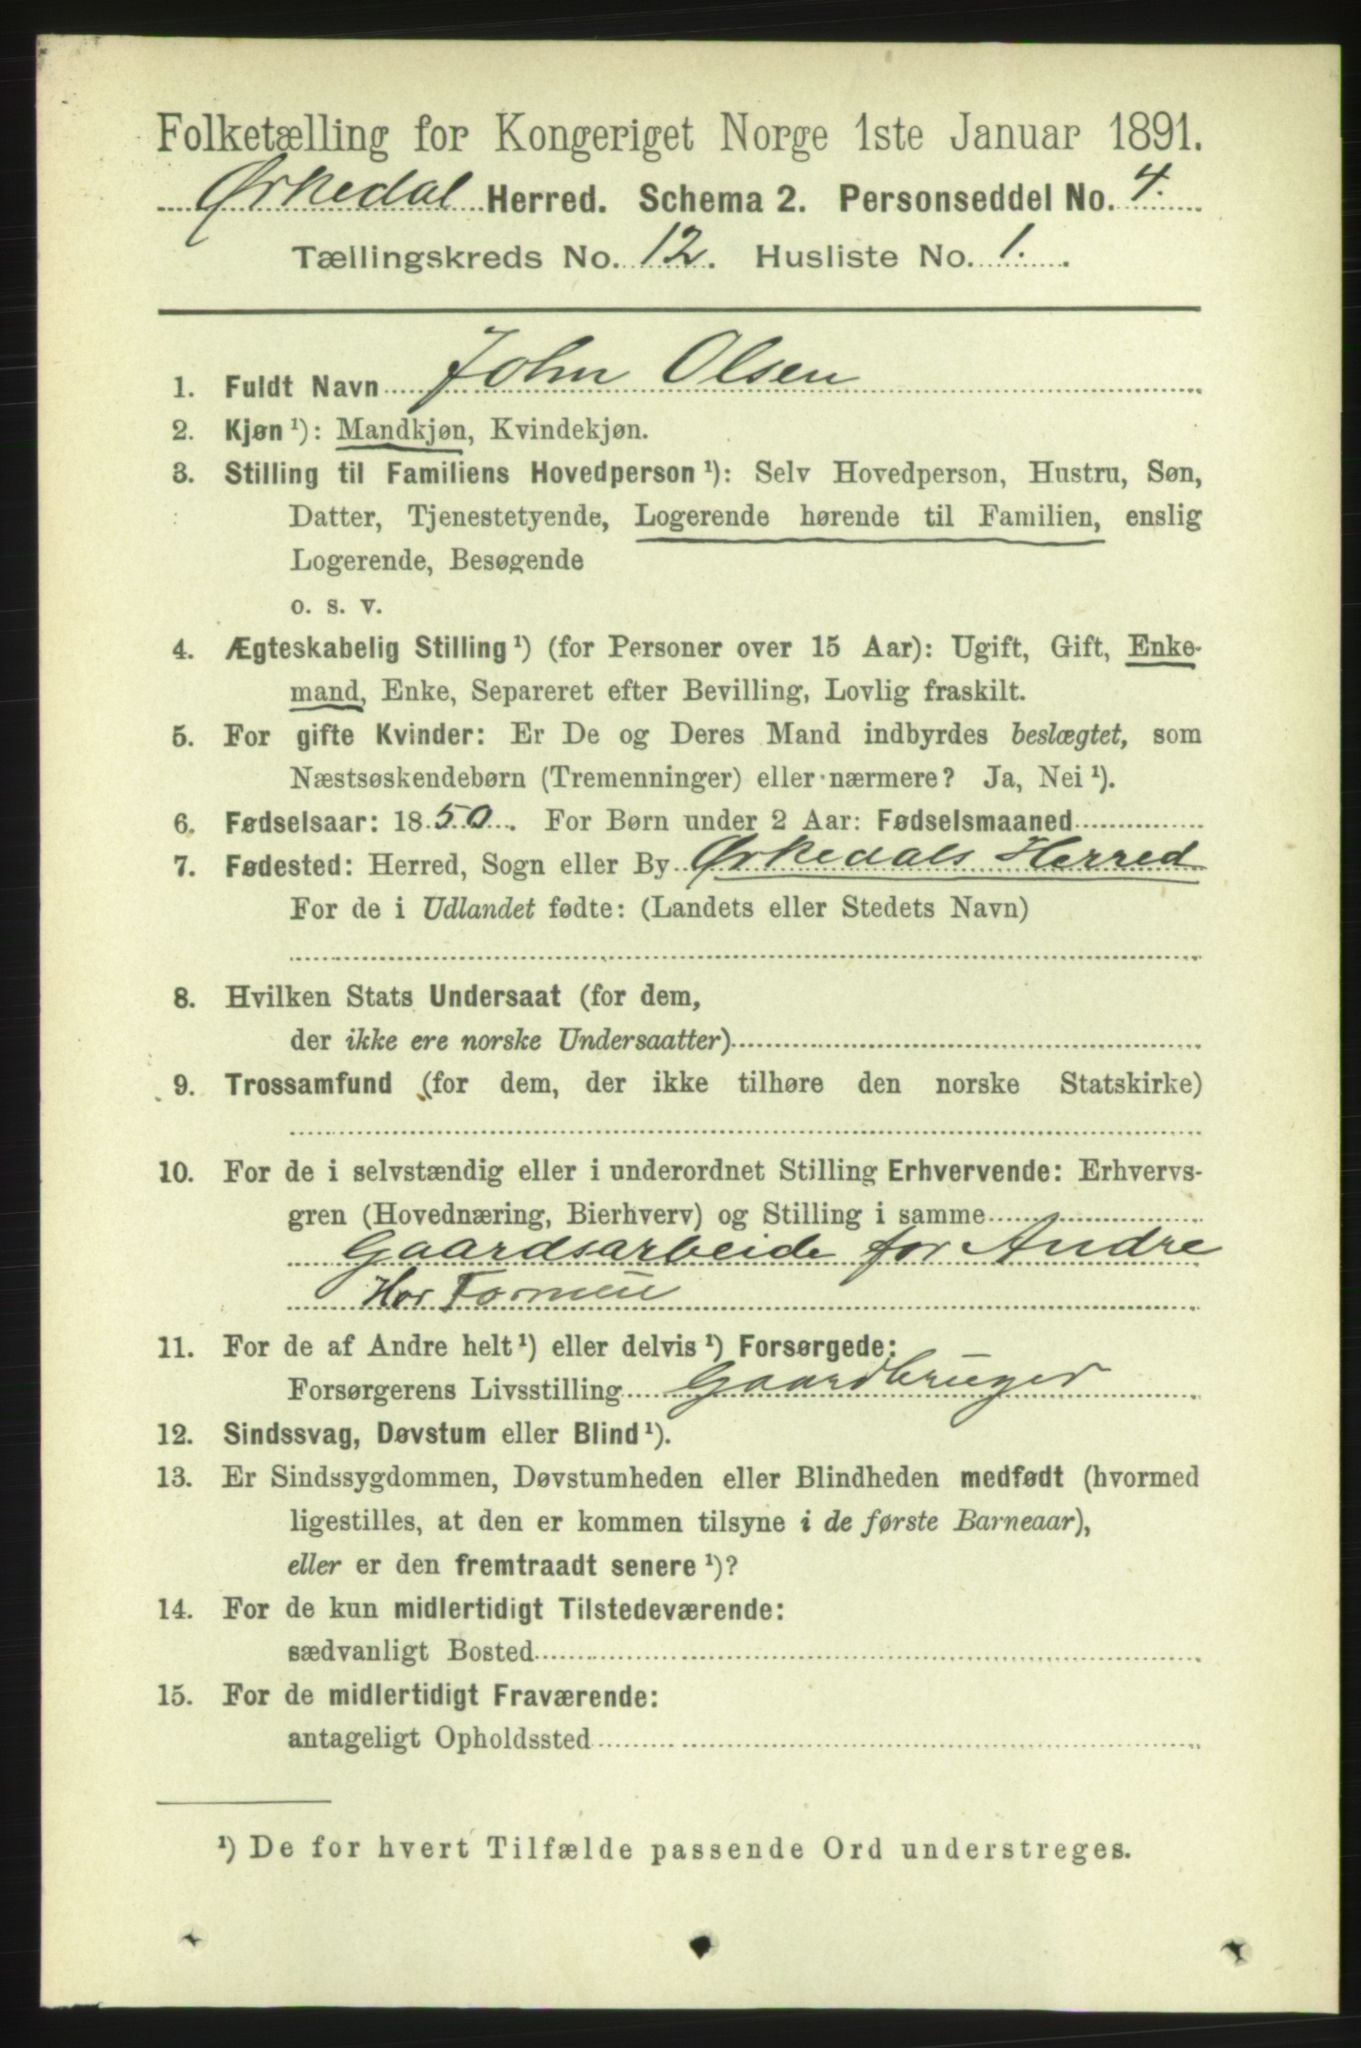 Folketælling for Kongeriget Norge 1ste Januar 1891.
Ørkedal Herred. Schema 2. Personseddel No. 4.
Tællingskreds No. 12. Husliste No. 1.
1. Fuldt Navn John Olsen
2. Kjøn ¹): Mandkjøn, Kvindekjøn.
3. Stilling til Familiens Hovedperson ¹): Selv Hovedperson, Hustru, Søn,
Datter, Tjenestetyende, Logerende hørende til Familien, enslig
Logerende, Besøgende
o. s. v.
4. Ægteskabelig Stilling ¹) (for Personer over 15 Aar): Ugift, Gift, Enke-
mand, Enke, Separeret efter Bevilling, Lovlig fraskilt.
5. For gifte Kvinder: Er De og Deres Mand indbyrdes beslægtet, som
Næstsøskendebørn (Tremenninger) eller nærmere? Ja, Nei ¹).
6. Fødselsaar: 1850. For Børn under 2 Aar: Fødselsmaaned
7. Fødested: Herred, Sogn eller By Ørkedals Herred
For de i Udlandet fødte: (Landets eller Stedets Navn)
8. Hvilken Stats Undersaat (for dem,
der ikke ere norske Undersaatter)
9. Trossamfund (for dem, der ikke tilhøre den norske Statskirke)
10. For de i selvstændig eller i underordnet Stilling Erhvervende: Erhvervs-
gren (Hovednæring, Bierhverv) og Stilling i samme
Gaardsarbeide for Andre
Har Formue
11. For de af Andre helt ¹) eller delvis ¹) Forsørgede:
Forsørgerens Livsstilling Gaardbruger
12. Sindssvag, Døvstum eller Blind ¹).
13. Er Sindssygdommen, Døvstumheden eller Blindheden medfødt (hvormed
ligestilles, at den er kommen tilsyne i de første Barneaar),
eller er den fremtraadt senere ¹)?
14. For de kun midlertidigt Tilstedeværende:
sædvanligt Bosted
15. For de midlertidigt Fraværende:
antageligt Opholdssted
¹) De for hvert Tilfælde passende Ord understreges.